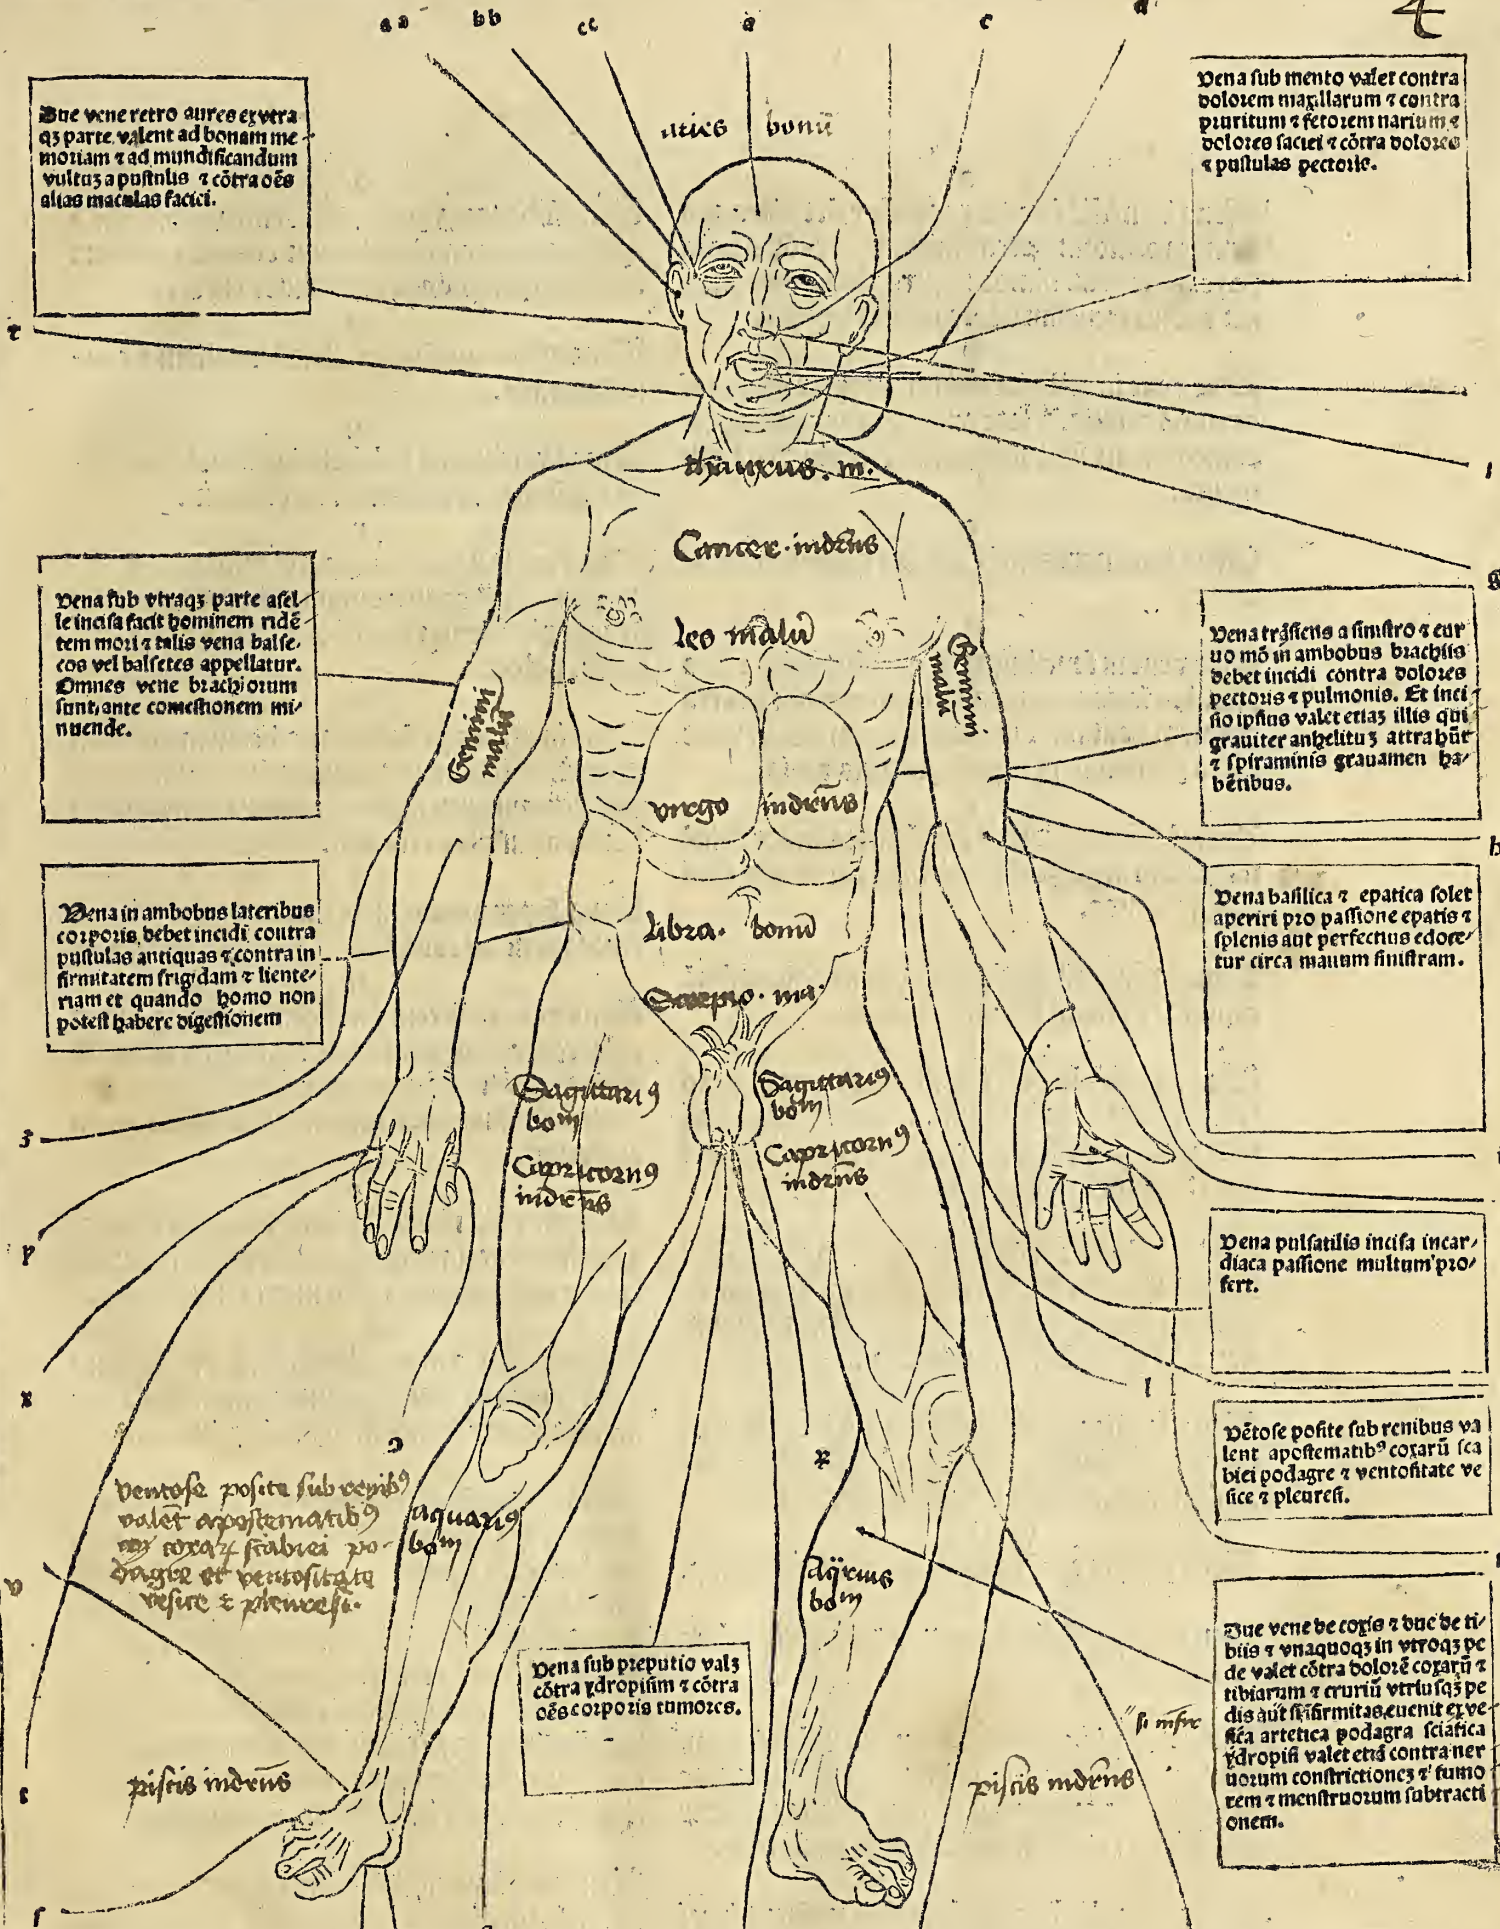 4
aa bb cc a c d
aries bonū
Due vene retro aures ex vtra
qꝫ parte valent ad bonam me
moriam ⁊ ad mundificandum
vultuꝫ a pustulis ⁊ cōtra oēs
alias maculas faciei.
Vena sub mento valet contra
dolorem maxillarum ⁊ contra
pruritum ⁊ fetorem narium ⁊
dolores faciei ⁊ cōtra dolores
⁊ pustulas pectoris.
t
thaurus. m.
Cancer. indr̄ns
leo malū
Gemini
malū
Gemini
malū
virgo indr̄ns
libra. bonū
Scorpio. ma.
Vena sub vtraqꝫ parte asel
le incisa facit hominem ridē
tem mori ⁊ talis vena balse-
cos vel balsetes appellatur.
Omnes vene brachiorum
sunt ante comestionem mi-
nuende.
Vena trāsiens a sinistro ⁊ cur
uo mō in ambobus brachiis
debet incidi contra dolores
pectoris ⁊ pulmonis. Et inci-
sio ipsius valet etiaꝫ illis qui
grauiter anhelituꝫ attrahūt
⁊ spiraminis grauamen ha-
bētibus.
h
Vena in ambobus lateribus
corporis debet incidi contra
pustulas antiquas ⁊ contra in
firmitatem frigidam ⁊ liente-
riam et quando homo non
potest habere digestionem
Vena basilica ⁊ epatica solet
aperiri pro passione epatis ⁊
splenis aut perfectius edoce-
tur circa manum sinistram.
Sagittariꝰ
bom
Capricornꝰ
indrēns
Sagittariꝰ
bom
Capricornꝰ
indrn̄s
ꝫ
y
x
Vena pulsatilis incisa in car-
diaca passione multum pro-
fert.
l
Vētose posite sub renibus va
lent apostematibꝰ coxarū sca
biei podagre ⁊ ventositate ve
sice ⁊ pleuresi.
ventose posite sub renibꝰ
valēt apostematibꝰ
coxarꝝ scabiei po-
dagre et ventositate
vesice ⁊ pleuresi.
aquariꝰ
bom
Aq̄rius
bom
v
Vena sub preputio valꝫ
cōtra ydropisim ⁊ cōtra
oēs corporis tumores.
Due vene de coxis ⁊ due de ti-
biis ⁊ vnaquoqꝫ in vtroqꝫ pe
de valet cōtra dolorē coxarū ⁊
tibiarum ⁊ cruriū vtriusqꝫ pe
dis aut si īfirmitas euenit ex ve-
sica artetica podagra sciatica
ydropisi valet etiā contra ner
uorum constrictionēꝫ ⁊ tumo
rem ⁊ menstruorum subtracti
onem.
piscis indrēns
piscis indrn̄s
s